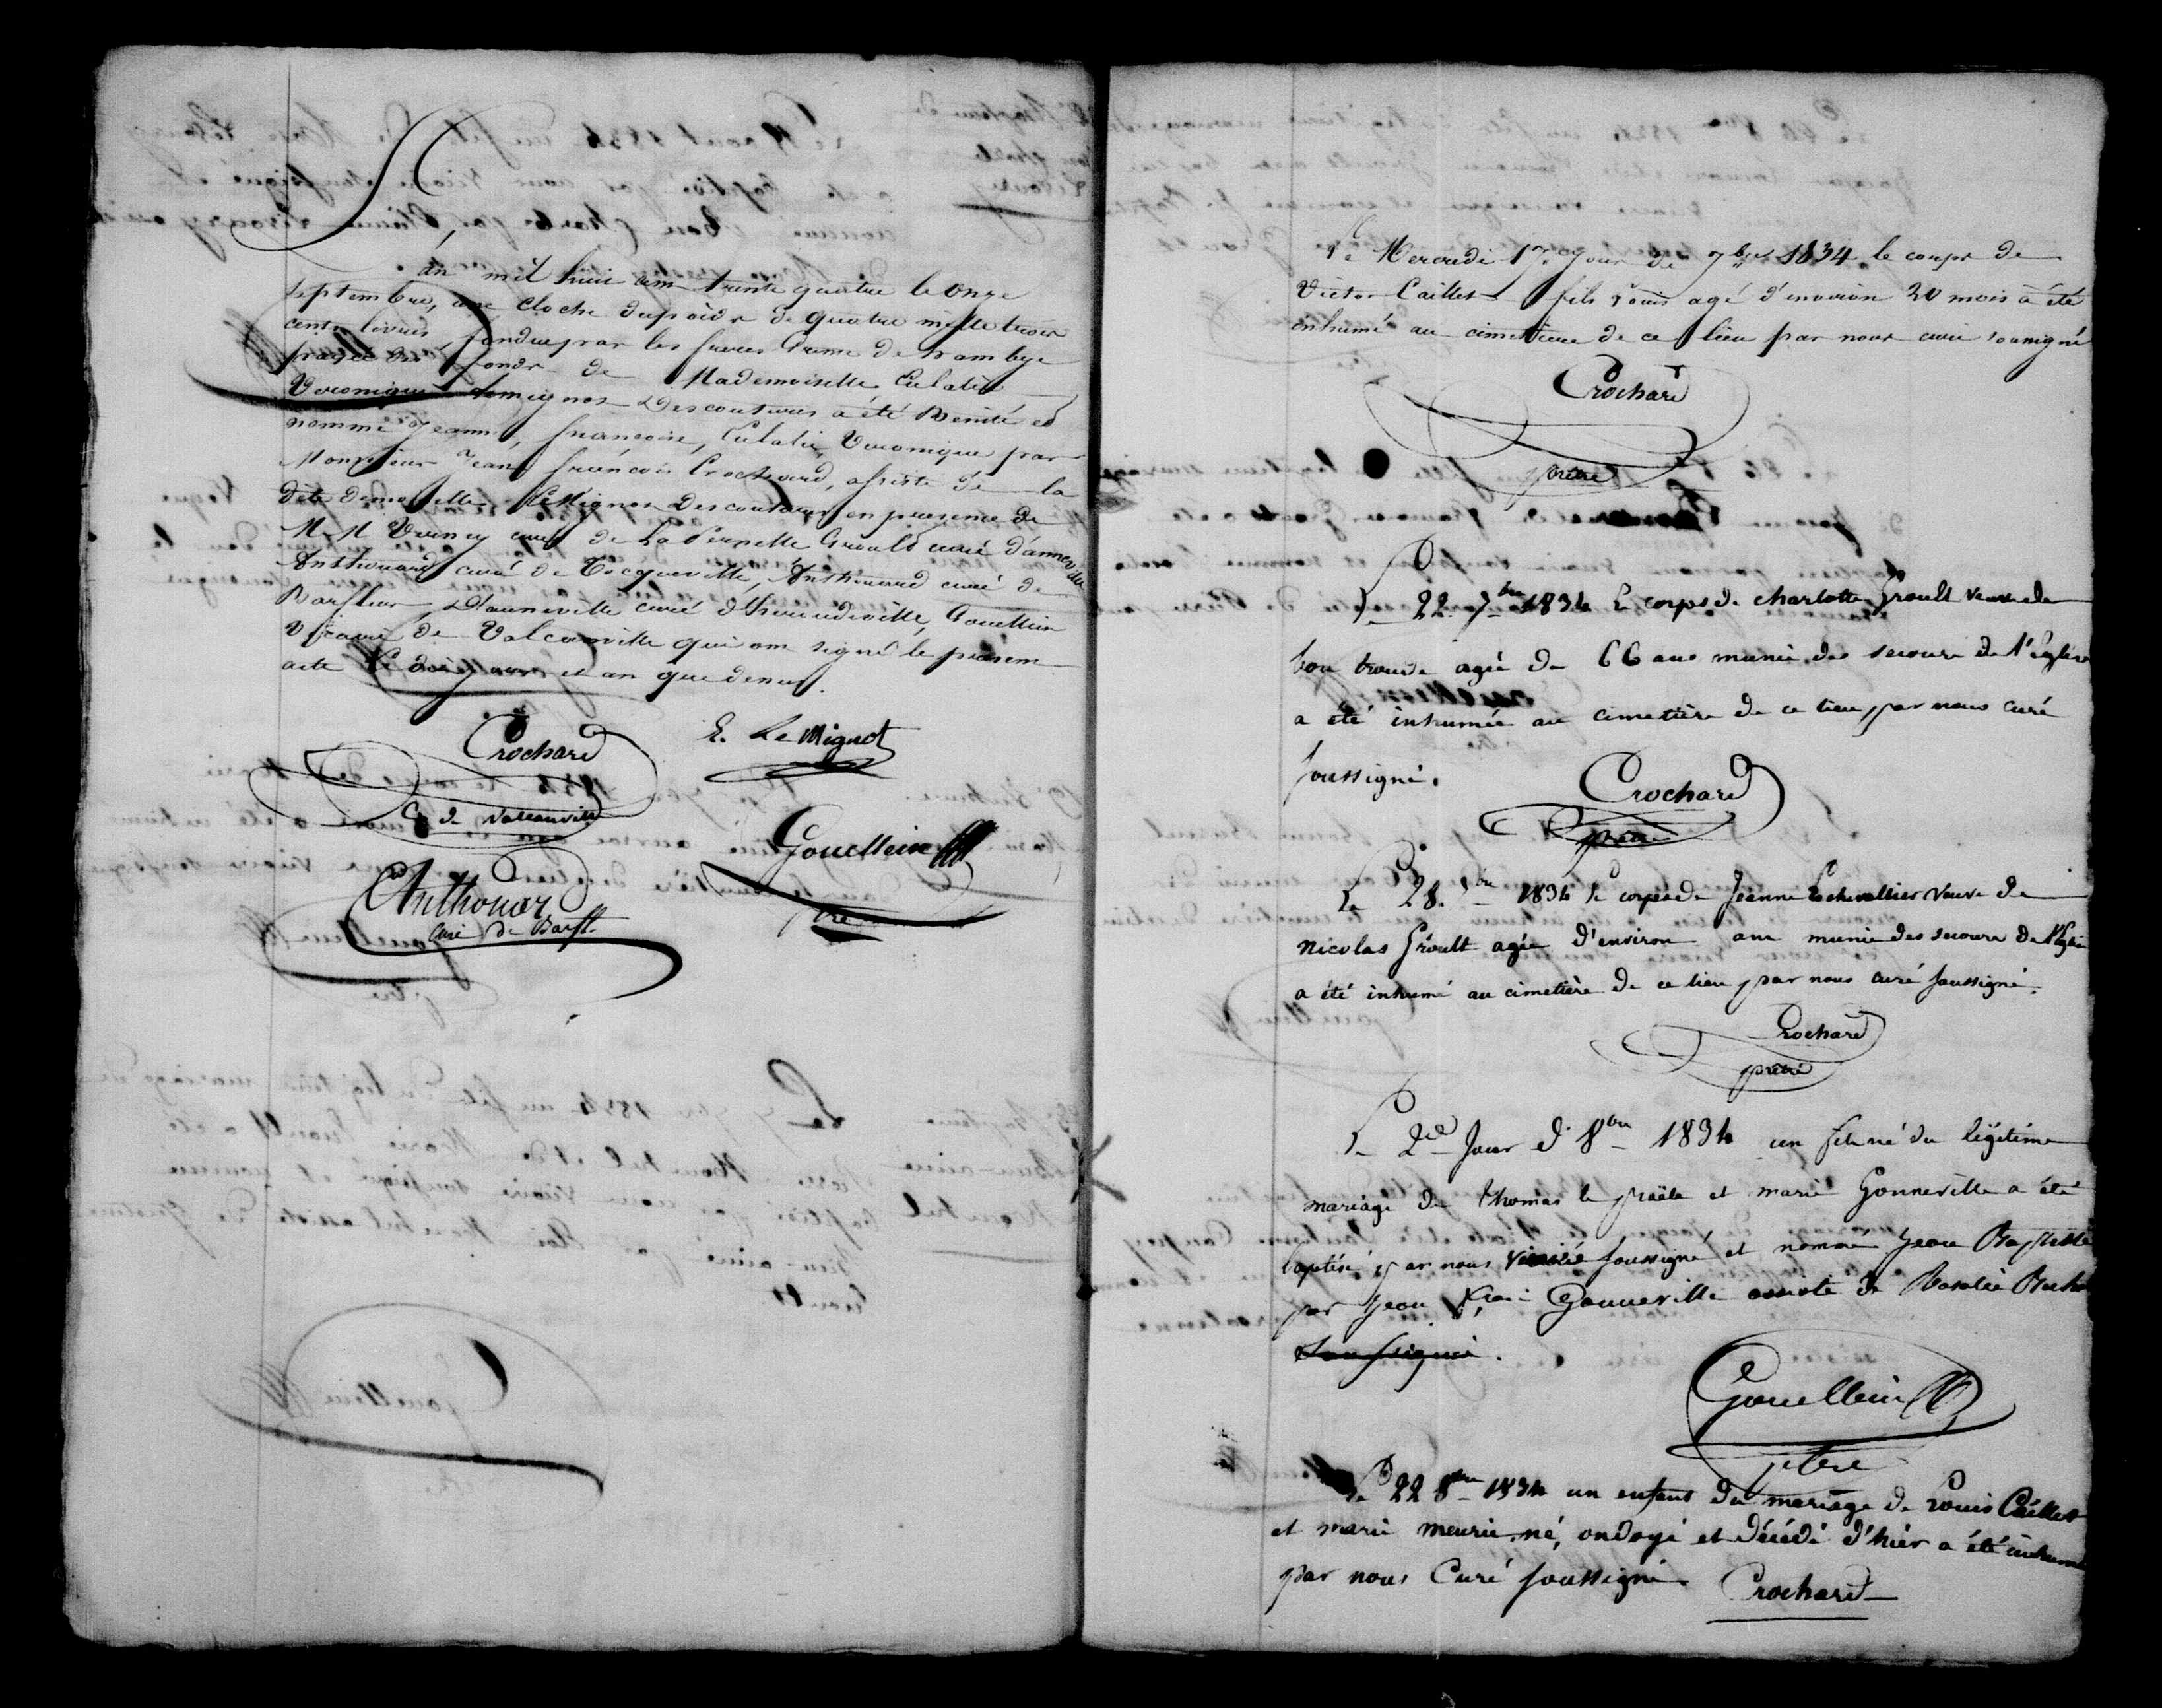 L'an mil huit cent trente quatre le onze
septembre, une cloche du poids de quatre mille trois
cents livres, fondue par les freres Grente de hambye
payée des fonds de Mademoiselle Eulalie
Veronique Lemignot Descoutures a été Benite et
nommé Jeanne, françoise, Eulalie, Veronique par
Monsieur Jean françois Crochard, assisté de la
dite demoiselle LeMignot Descoutures en presence de
M.M curé de La Pernelle Groult curé d'anneville
Anthouard curé de Tocqueville, Anthouard curé de
Barfleur, curé de Gouellein
Vicaire de Valcanville qui ont signé le présent
acte le dit jour et an que dessus.
Crochard
C de Valcanville
E. Le Mignot
Gouellein
ptre
Anthouard
Curé de Barfl.
Le Mercredi 17 Jour de 7bre 1834 le corps de
Victor Caillet fils Louis agé d'environ 20 mois a été
inhumé au cimetiere de ce lieu par nous curé soussigné
Crochard
prêtre
Le 22. 7bre 1834 le corps de charlotte Groult veuve de
bon agée de 66 ans munie des secours de l'église
a été inhumée au cimetière de ce lieu, par nous curé
soussigné.
Crochard
prêtre
Le 28. 7bre 1834 le corps de Jeanne Lechevallier veuve de
nicolas Groult agée d'environ ans munie des secours de l'église
a été inhumé au cimetière de ce lieu par nous curé soussigné.
Crochard
prêtre
Le 2e Jour de 8bre 1834 un fils né du légitime
mariage de thomas le et marie Gonneville a été
baptisé par nous vicaire soussigné et nommé Jean Baptiste
par Jean fçois Gonneville assisté de Rosalie
soussigné.
Gouellein
ptre
Le 22 8bre 1834 un enfant du mariage de Louis Caillet
et marie meurie né, ondoyé et décédé d'hier a été inhumé
par nous Curé soussigné Crochard